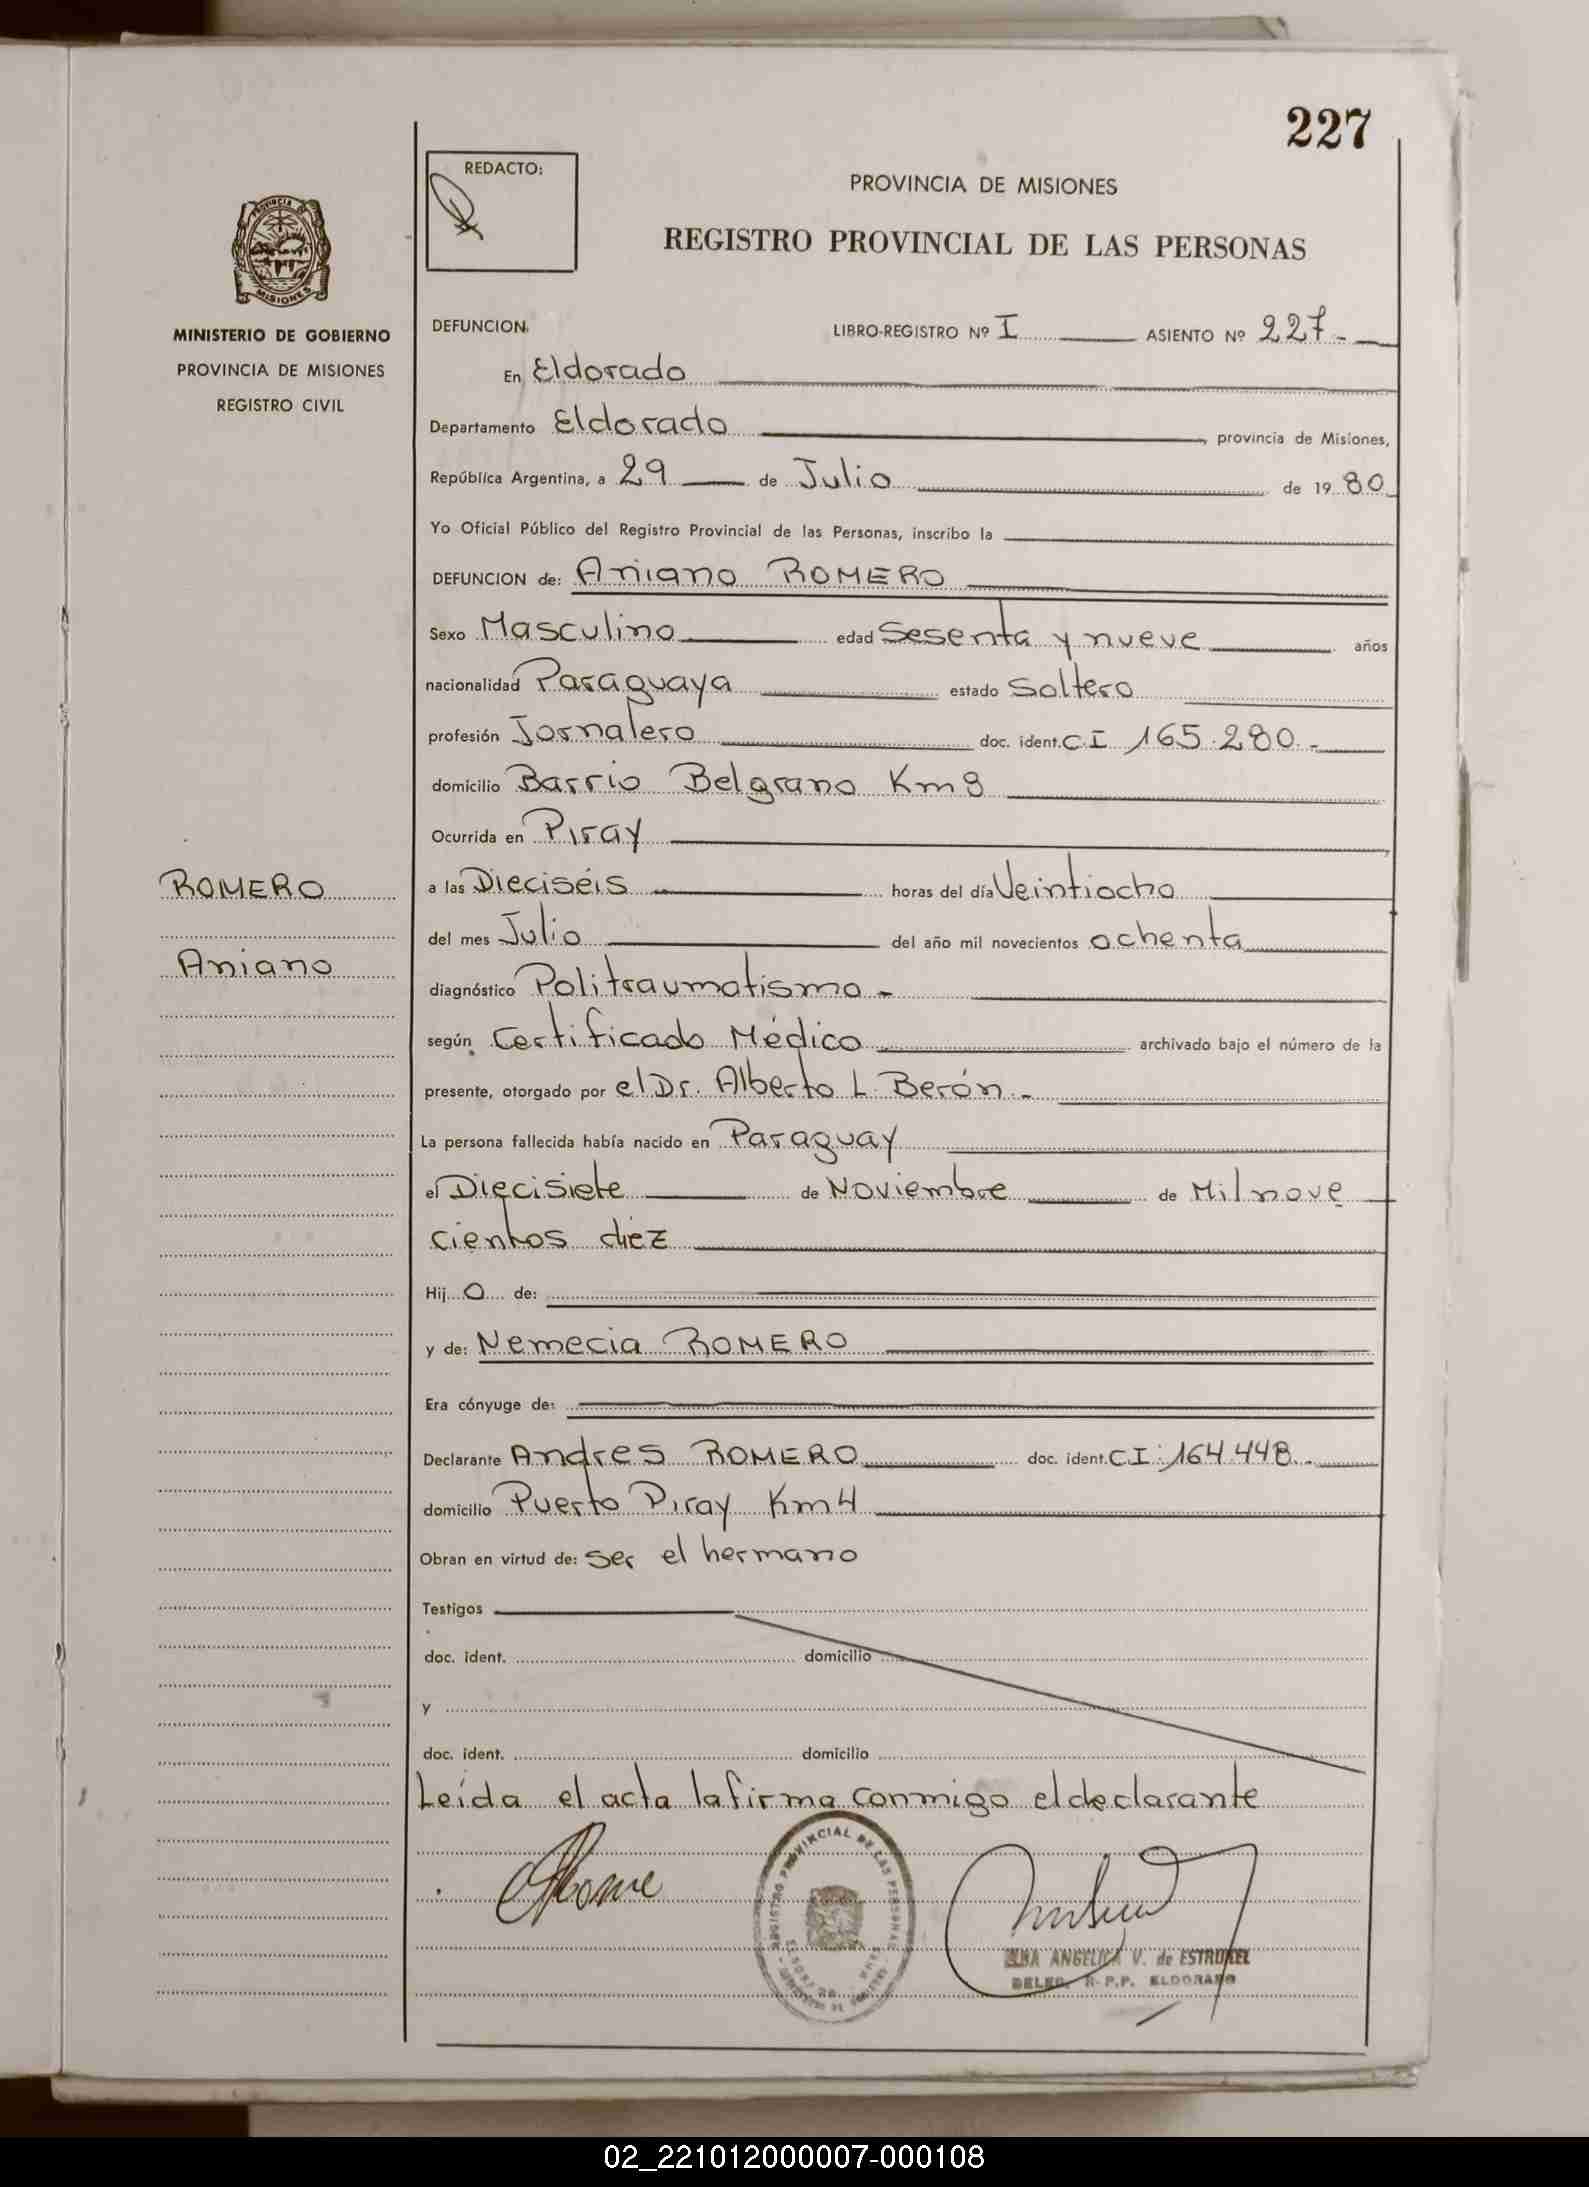 227
REDACTO:
PROVINCIA DE MISIONES
REGISTRO PROVINCIAL DE LAS PERSONAS
PROVINCIA DE
MISIONES
MINISTERIO DE GOBIERNO
PROVINCIA DE MISIONES
REGISTRO CIVIL
DEFUNCION. LIBRO-REGISTRO Nº I ASIENTO Nº 227-
En Eldorado
Departamento Eldorado, provincia de Misiones,
República Argentina, a 29 de Julio de 1980
Yo Oficial Público del Registro Provincial de las Personas, inscribo la
DEFUNCION de: Aniano ROMERO
Sexo Masculino edad Sesenta y nueve años
nacionalidad Paraguaya estado Soltero
profesión Jornalero doc. ident. C.I 165.280.-
domicilio Barrio Belgrano Km 8
Ocurrida en Piray
ROMERO
Aniano
a las Dieciséis horas del día Veintiocho
del mes Julio del año mil novecientos ochenta
diagnóstico Politraumatismo -
según Certificado Médico archivado bajo el número de la
presente, otorgado por el Dr. Alberto L. Berón.-
La persona fallecida había nacido en Paraguay
el Diecisiete de Noviembre de Mil nove
cientos diez
Hijo de:
y de: Nemecia ROMERO
Era cónyuge de:
Declarante Andres ROMERO doc. ident. CI: 164.448.-
domicilio Puerto Piray Km 4
Obran en virtud de: ser el hermano
Testigos
doc. ident. domicilio
y
doc. ident. domicilio
Leída el acta la firma conmigo el declarante
REGISTRO PROVINCIAL DE LAS PERSONAS
ANGELICA V. de
DELEG. R.P.P. ELDORADO
02_221012000007-000108